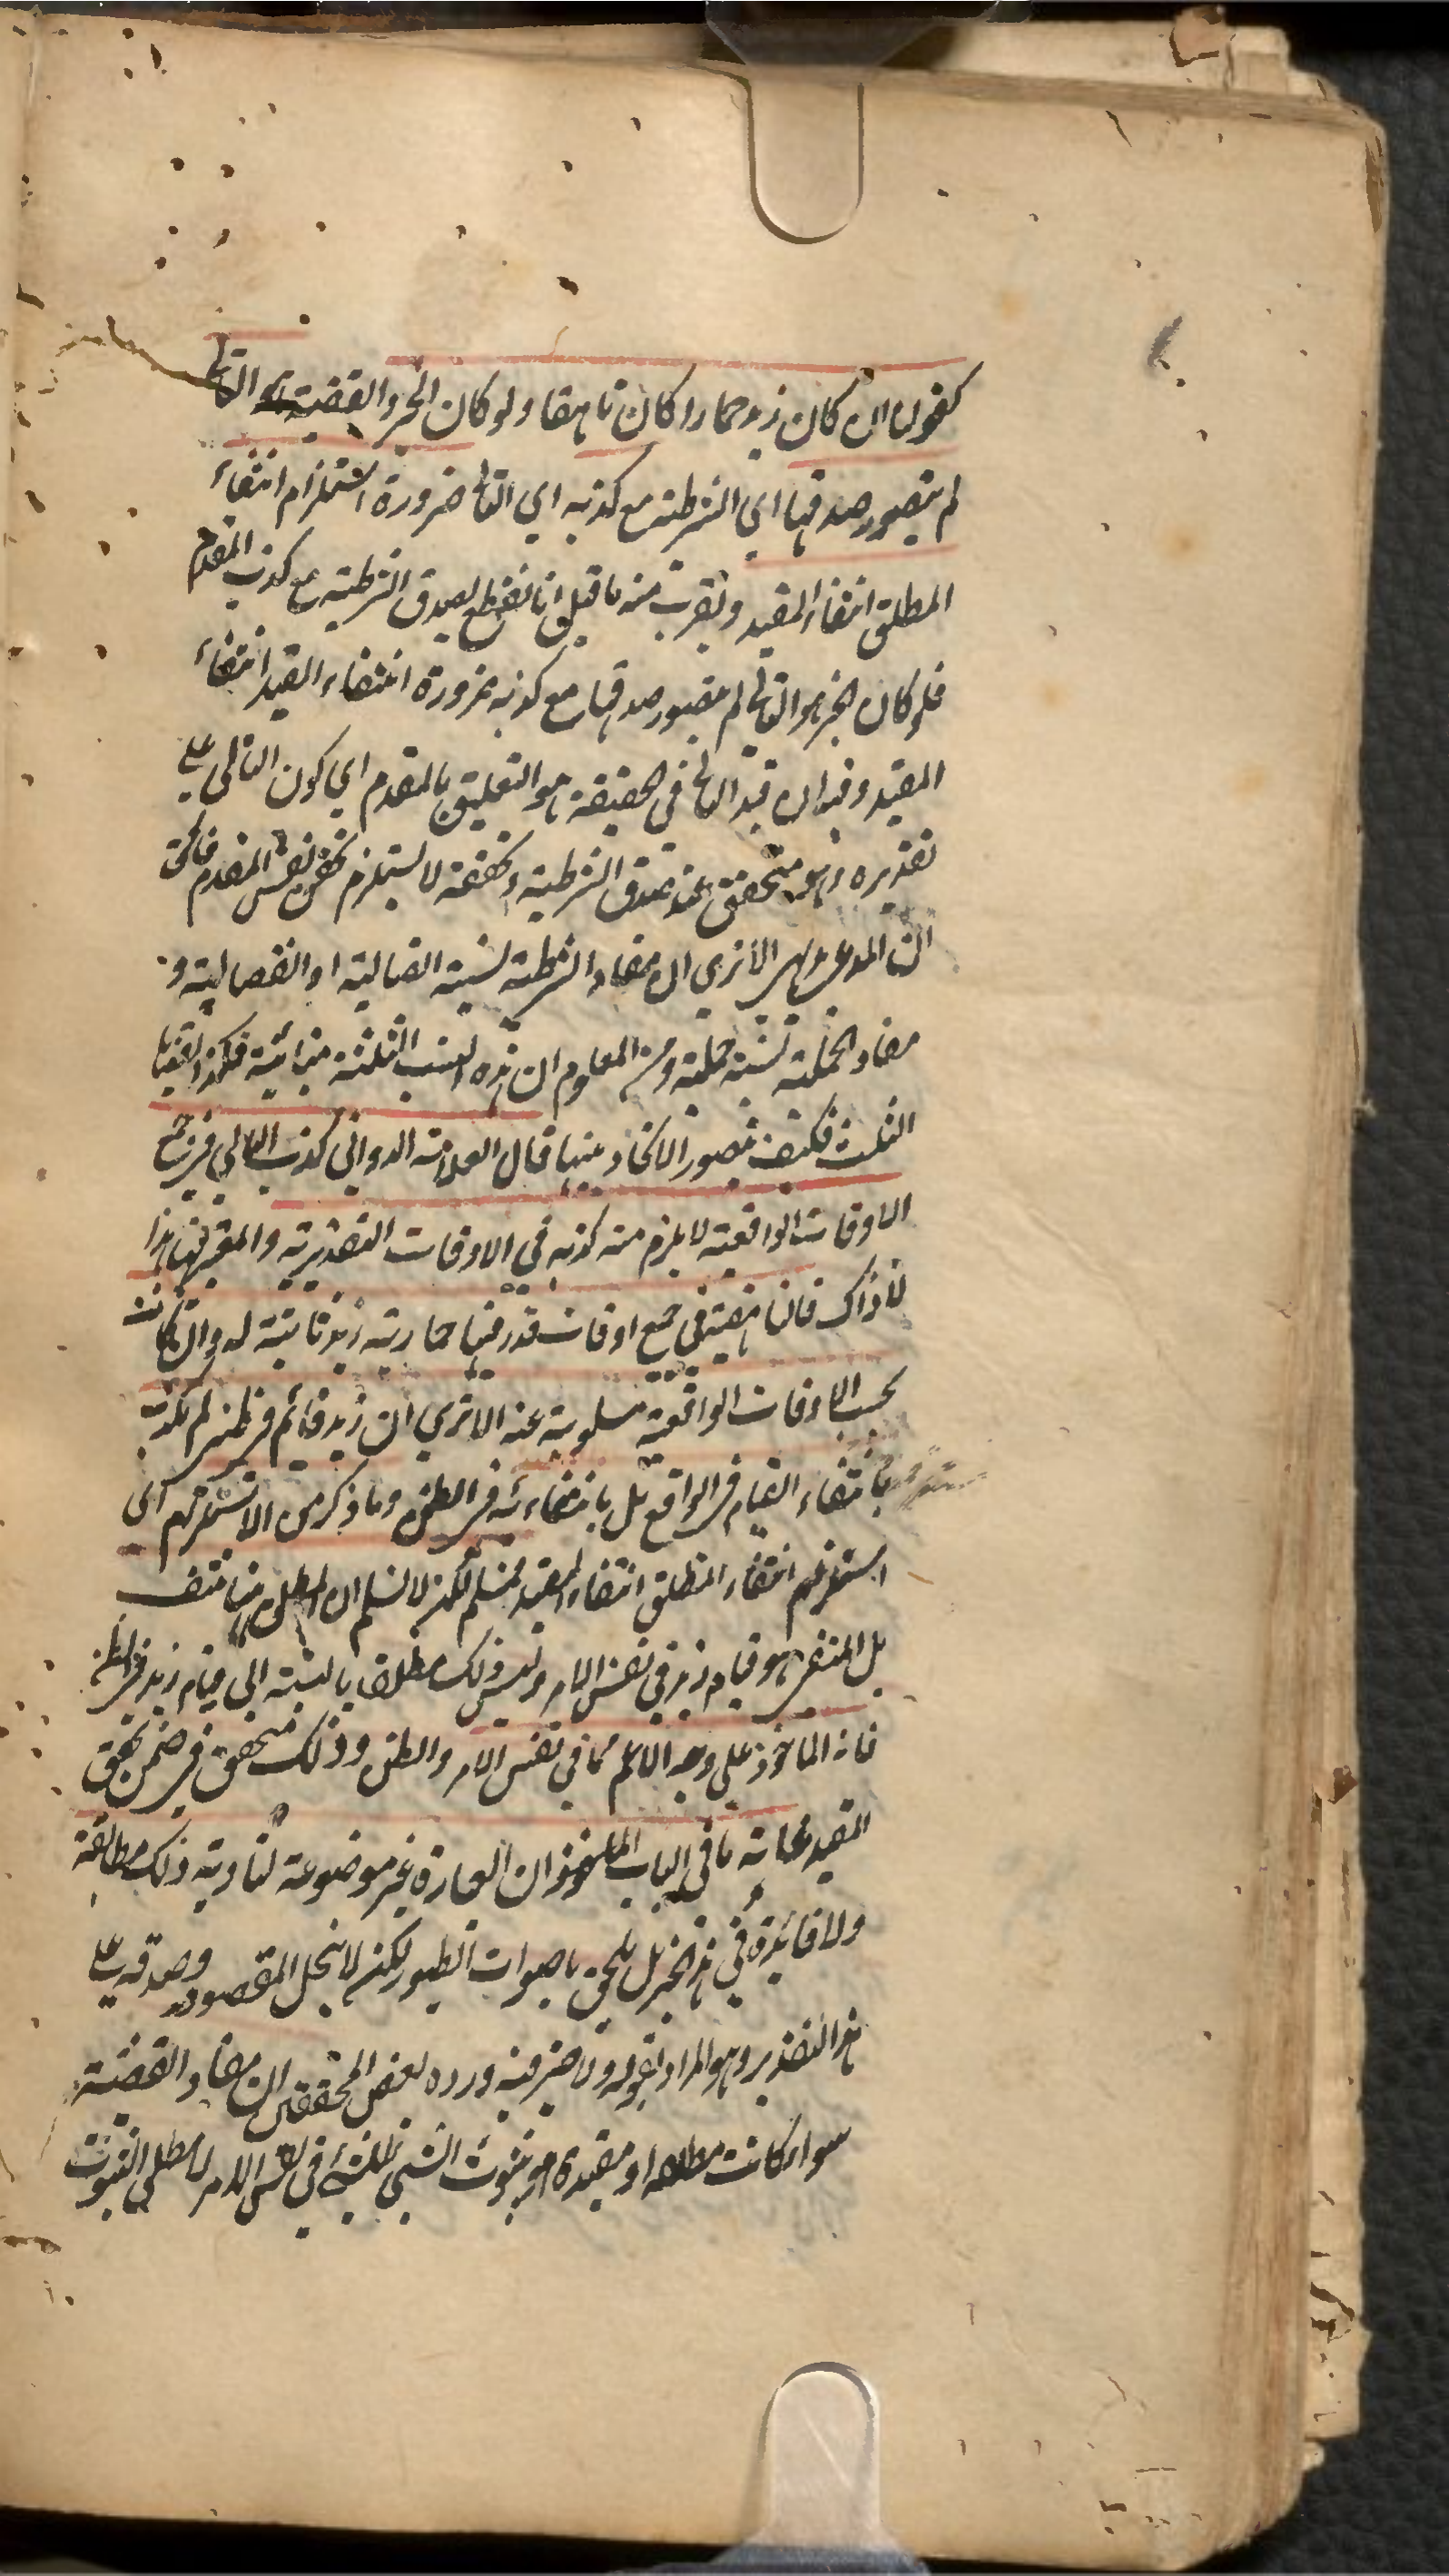 كقولنا ان كان زيد حمارا كان ناهقا ولو كان الخبر والقضية هو التالي
لم يتصور صدقها اي الشرطية مع كذبه اي التالي ضرورة استلزام انتفاء
المطلق انتفاء المقيد ويقرب منه ما قيل انا نقطع بصدق الشرطية مع كذب المقدم
فلو كان الخبر هو التالي لم يتصور صدقها مع كذبه ضرورة انتفاء القيد انتفاء
المقيد وفيه ان قيد التالي في الحقيقة هو التعليق بالمقدم اي كون التالي على
تقديره وهو متحقق عند صدق الشرطية وتحققه لا يستلزم تحقق نفس المقدم فالحق
ان المدعى بديهي الا ترى ان مفاد الشرطية نسبة اتصالية او انفصالية و
مفاد الحملية نسبة حملية ومن المعلوم ان هذه النسب الثلثة متبائنة فكذا القضايا
الثلث فكيف يتصور الاتحاد بينها قال العلامة الدواني كذب التالي في جميع
الاوقات الواقعية لا يلزم منه كذبه في الاوقات التقديرية والمعتبر ههنا هذا
لا ذاك فالناهقية في جميع اوقات قدر فيها حمارية زيد ثابتة له وان كانت
بحسب الاوقات الواقعية مسلوبة عنه الا ترى ان زيد قائم في ظني لم يكذب
بانتفاء القيام في الواقع بل بانتفائه في الظن وما ذكر من الاستلزام اي
استلزام انتفاء المطلق انتفاء المقيد مسلم لكن لا نسلم ان المطلق ههنا منتف
بل المنتفي هو قيام زيد في نفس الامر وليس ذلك مطلقا بالنسبة الى قيام زيد في الظن
فانه الماخوذ على وجه الاعم مما في نفس الامر والظن وذلك متحقق في ضمن تحقق
المقيد غاية ما في الباب ان العبارة غير موضوعة لتادية ذلك مطابقة
ولا فائدة في هذا الخبر بل يلحق باصوات الطيور لكنه لا يخل المقصود وصدقه على
هذا التقدير وهو المراد بقوله ولا ضير فيه ورده بعض المحققين ان مفاد القضية
سواء كانت مطلقة او مقيدة هو ثبوت الشيء للشيء في نفس الامر لا مطلق الثبوت